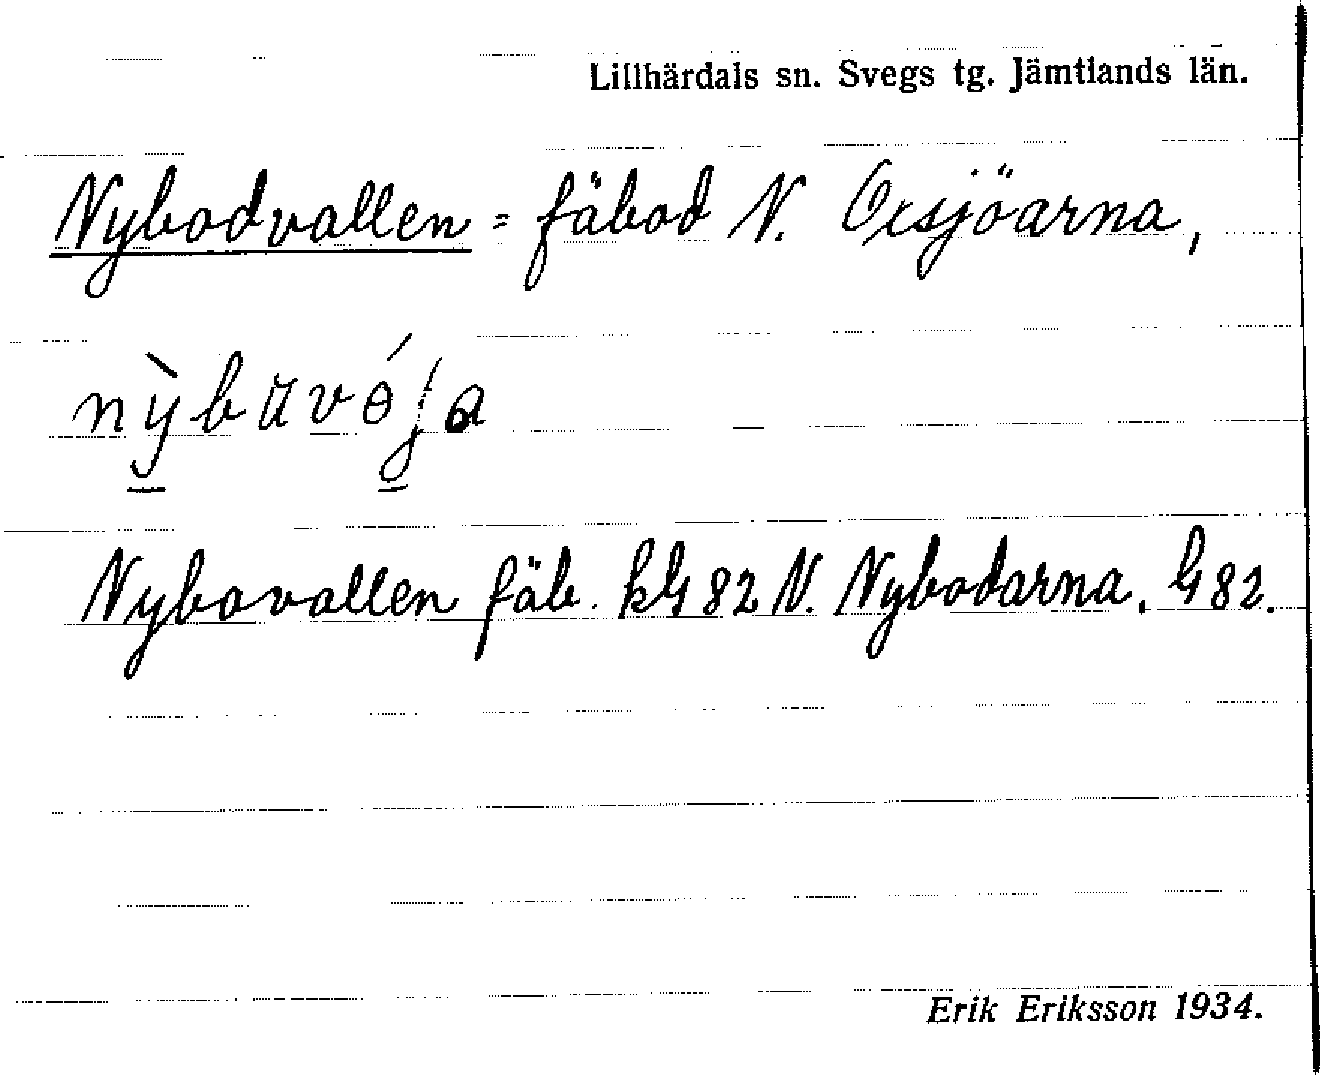 Lillhärdals sn. Svegs tg. Jämtlands län.
Nybodvallen = fäbod N. Orsjöarna,
nỳbŭvɵ́ʃa
Nybovallen fäb. kG 82 N. Nybodarna. G 82.
Erik Eriksson 1934.